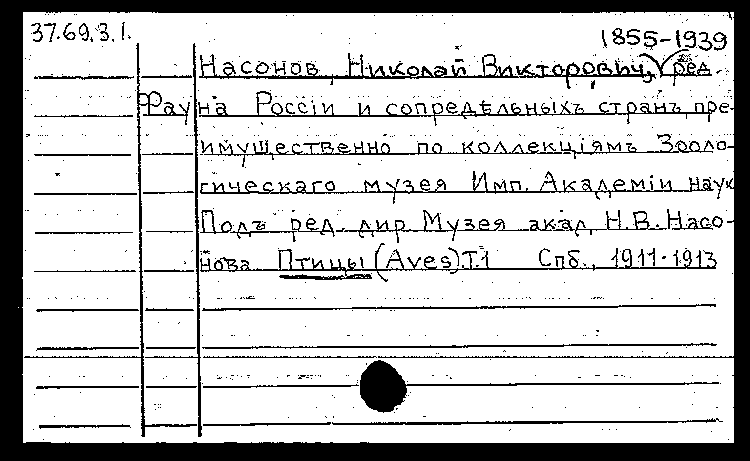 37.69.3.1.
1855-1939
Насонов, Николай Викторович, ред.
Фауна Россіи и сопредѣльныхъ странъ, пре-
имущественно по коллекціямъ Зооло-
гическаго музея Имп. Академіи наук
Подъ ред. дир. Музея акад. Н.В. Насо-
нова Птицы (Aves). Т.1 Спб., 1911-1913